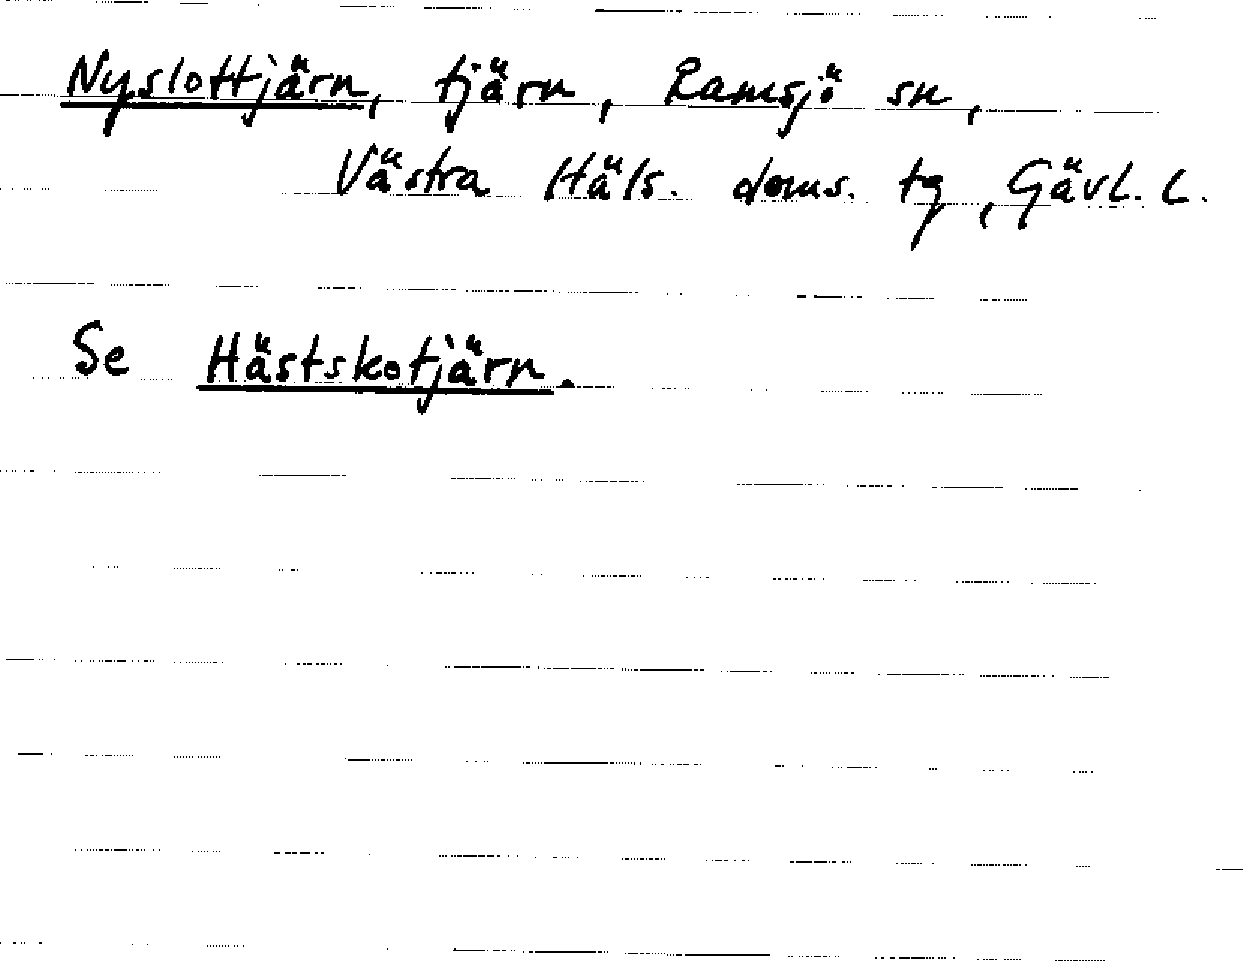 Nyslottjärn, tjärn, Ramsjö sn,
Västra Häls. doms. tg, Gävl. L.
Se Hästskotjärn.